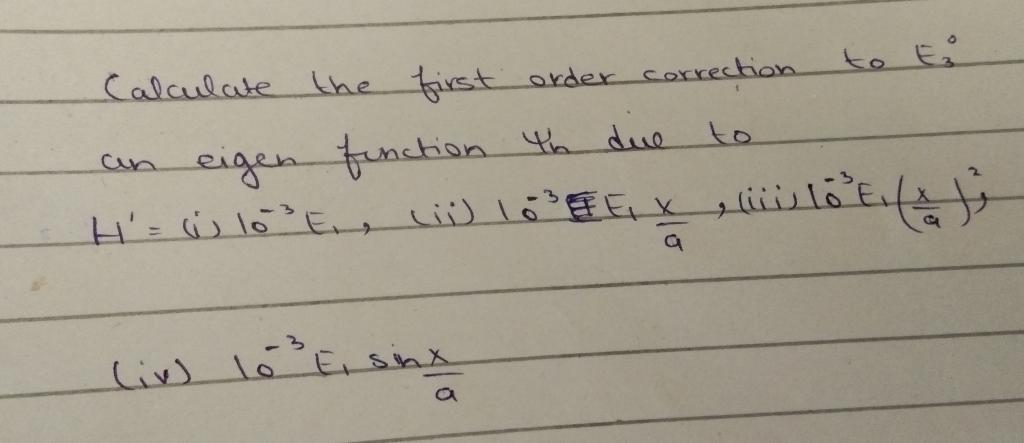 Calculate the first order correction to E₃⁰
an eigen function ψn due to
H' = (i) 10⁻³ E₁, (ii) 10⁻³ E₁ x/a, (iii) 10⁻³ E₁ (x/a)²,
(iv) 10⁻³ E₁ sin x/a